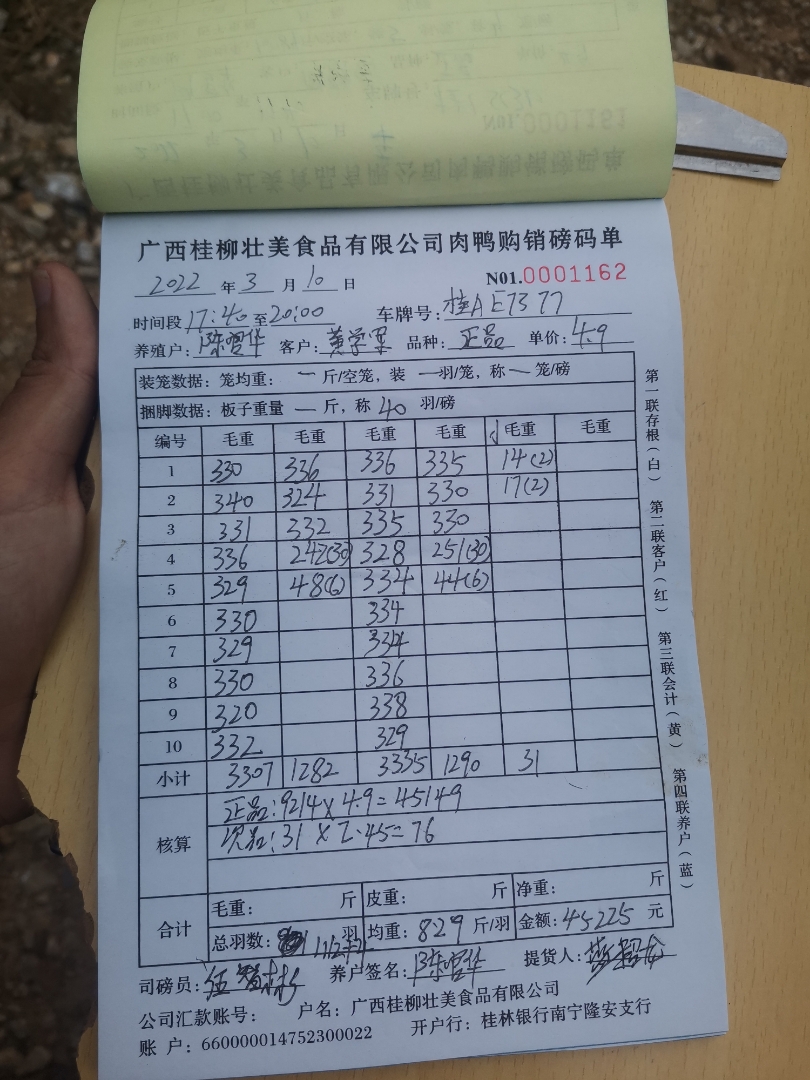 广西桂柳壮美食品有限公司肉鸭购销磅码单
2022 年 3 月 10 日 N01.0001162
时间段 17:40 至 20:00 车牌号: 桂A E7377
养殖户: 陈雪华 客户: 黄学军 品种: 正品 单价: 4.9
装笼数据: 笼均重: 一 斤/空笼, 装 一 羽/笼, 称 一 笼/磅
捆脚数据: 板子重量 一 斤, 称 40 羽/磅
编号 毛重 毛重 毛重 毛重 毛重 毛重
1 330 336 336 335 14(2)
2 340 324 331 330 17(2)
3 331 332 335 330
4 336 242(30) 328 251(30)
5 329 48(6) 334 44(6)
6 330 334
7 329 334
8 330 336
9 320 338
10 332 329
小计 3307 1282 3335 1290 31
核算
正品: 9214 × 4.9 = 45149
次品: 31 × 2.45 = 76
合计
毛重: 斤 皮重: 斤 净重: 斤
总羽数: 1112 羽 均重: 829 斤/羽 金额: 45225 元
司磅员: 养户签名: 陈雪华 提货人:
公司汇款账号: 户名: 广西桂柳壮美食品有限公司
账 户: 660000014752300022 开户行: 桂林银行南宁隆安支行
第一联存根(白) 第二联客户(红) 第三联会计(黄) 第四联养户(蓝)